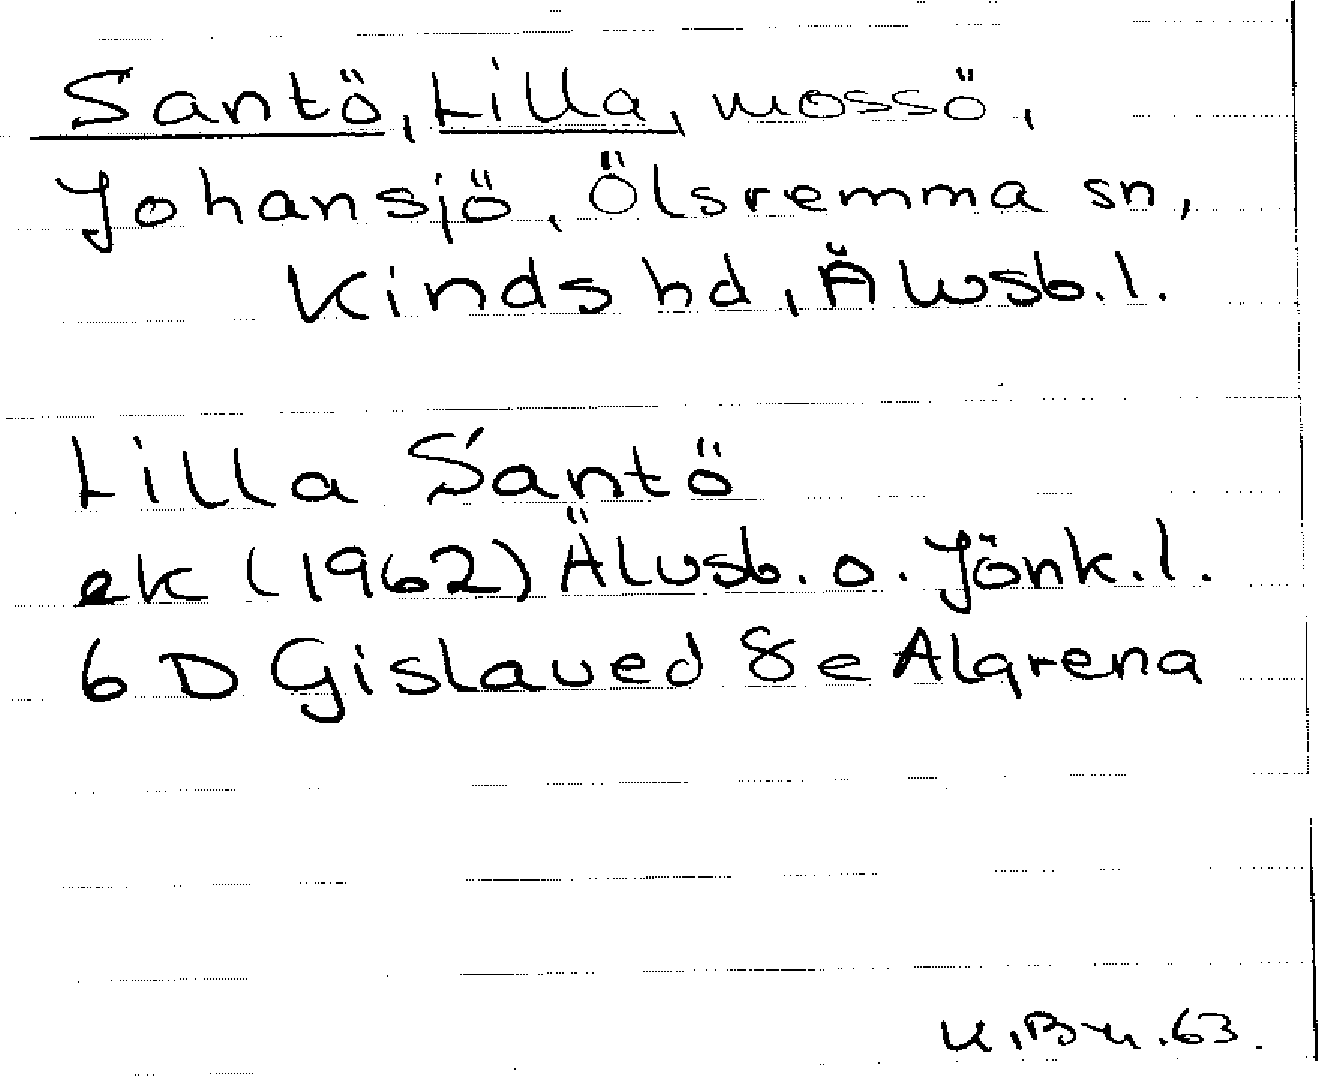 Santö, Lilla, mossö,
Johansjö, Ölsremma sn,
Kinds hd, Älvsb.l.
Lilla Santö
ek (1962) Älvsb. o. Jönk.l.
6 D Gislaved 8e Algrena
K.Bn.63.